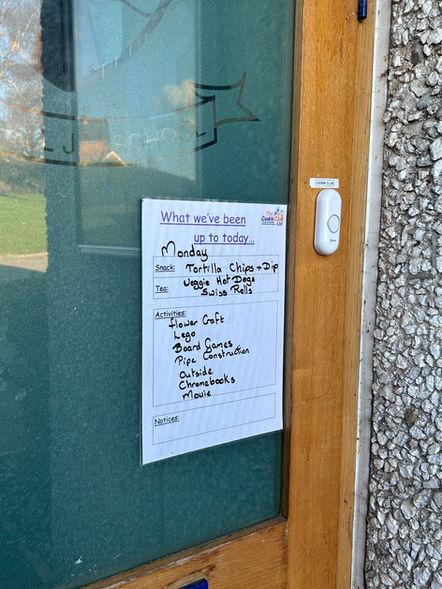 SCHOOL
What we've been
up to today...
The
Cookie Club
Ltd
Monday
Snack: Tortilla Chips + Dip
Tea: Veggie Hot Dogs
Swiss Rolls
Activities:
flower Craft
Lego
Board Games
Pipe Construction
Outside
Chromebooks
Movie
Notices: